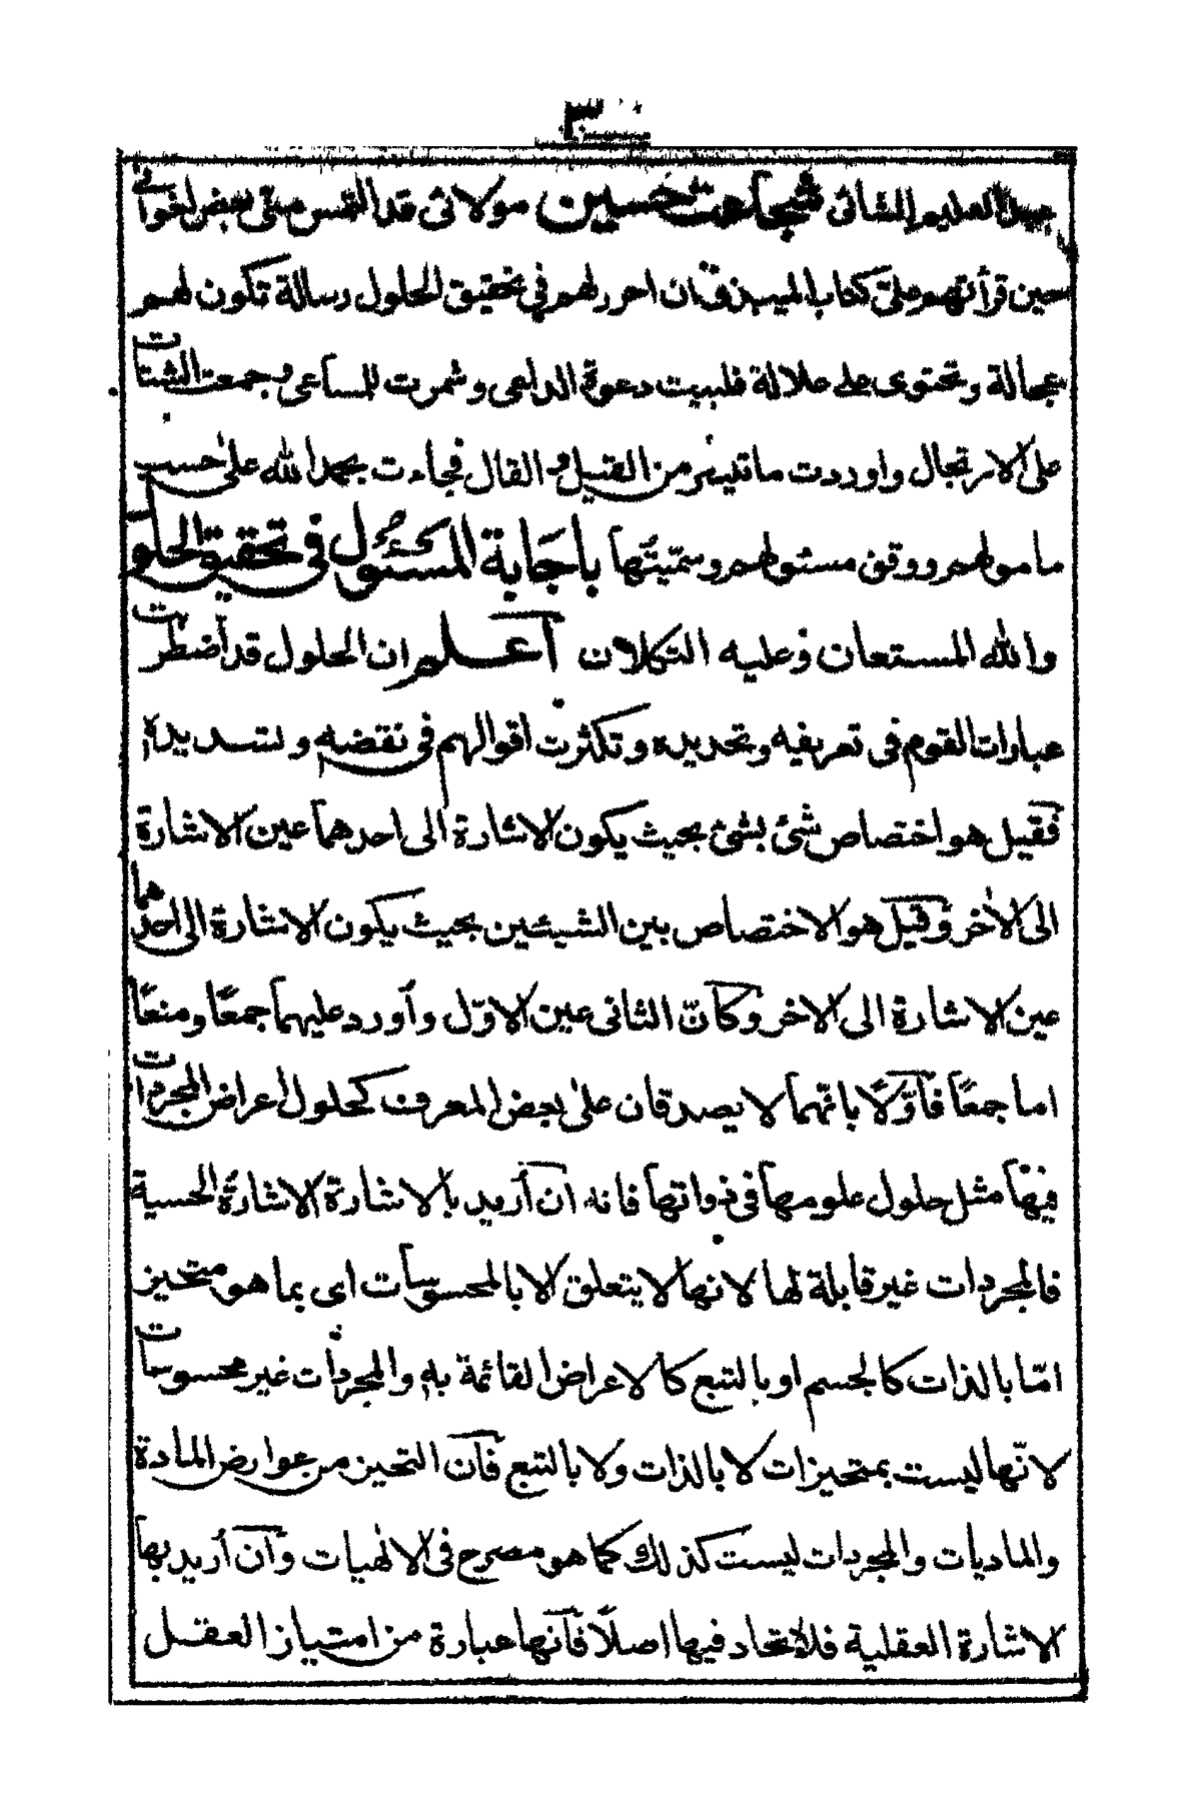 ٣
عبد العليم الشائي شجاعت حسين مولائي قد التمس منى بعض اخوانى
حين قرأتهم على كتاب الميبذى ان احرر لهم في تحقيق الحلول رسالة تكون لهم
عجالة وتحتوى على علالة فلبيت دعوة الداعى وشمرت للمساعى وجمعت الشتات
على الارتجال واوردت ما تيسر من القيل والقال فجاءت بحمد الله على حسب
ما مولهم ووفق مسئولهم وسمّيتُها باجابة المسئول فى تحقيق الحلول
والله المستعان وعليه التكلان اعلم ان الحلول قد اضطربت
عبارات القوم فى تعريفه وتحديده وتكثرت اقوالهم فى نقضه وتسديده
فقيل هو اختصاص شئ بشئ بحيث يكون الاشارة الى احدهما عين الاشارة
الى الأخر وقيل هو الاختصاص بين الشيئين بحيث يكون الاشارة الى احدهما
عين الاشارة الى الاخر وكانّ الثانى عين الاوّل وأورد عليهما جمعًا ومنعًا
اما جمعًا فاوّلًا بانّهما لا يصدقان على بعض المعرف كحلول أعراض المجردات
فيها مثل حلول علومها فى ذواتها فانه ان أريد بالاشارة الاشارة الحسية
فالمجردات غير قابلة لها لانها لا يتعلق الا بالمحسوسات اى بما هو متحيز
امّا بالذات كالجسم او بالتبع كالاعراض القائمة به والمجردات غير محسوسات
لانّها ليست بمتحيزات لا بالذات ولا بالتبع فان التحيز من عوارض المادة
والماديات والمجردات ليست كذلك كما هو مصرح فى الالهيات وان أريد بها
الاشارة العقلية فلا اتحاد فيها اصلًا فانها عبارة من امتياز العقل